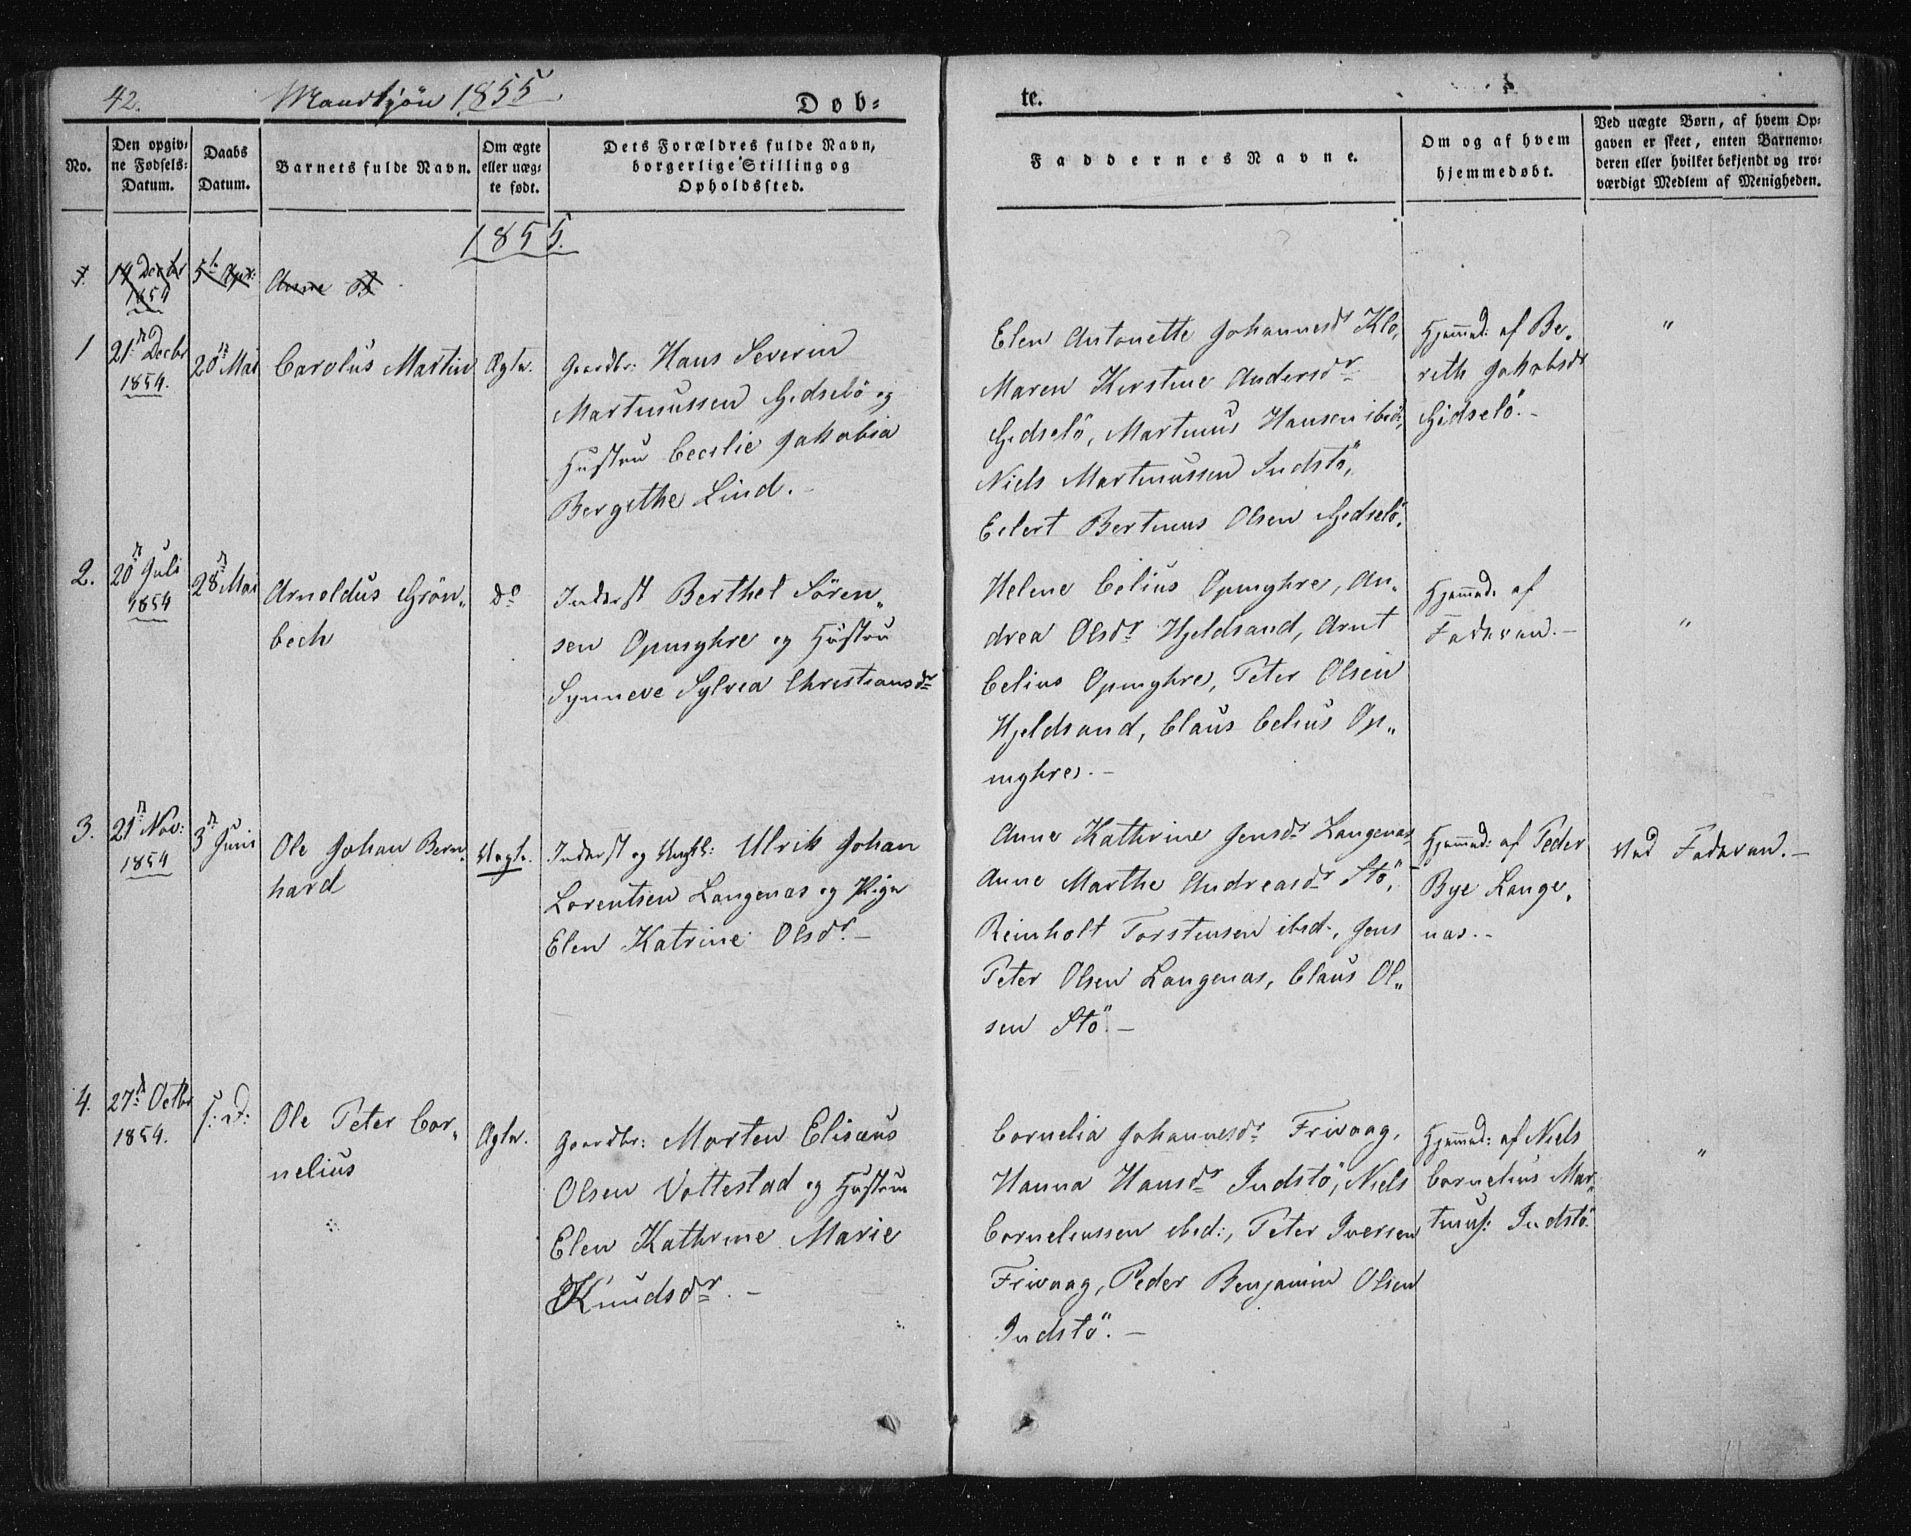 42.
Mandkjön 1855.
Døb=
te.
No.
Den opgiv=
ne Fødsels=
Datum.
Daabs
Datum.
Barnets fulde Navn.
Om ægte
eller uæg=
te født.
Dets Forældres fulde Navn,
borgerlige Stilling og
Opholdssted.
Faddernes Navne.
Om og af hvem
hjemmedøbt.
Ved uægte Børn, af hvem Op=
gaven er skeet, enten Barnemo=
deren eller hvilket bekjendt og tro=
værdigt Medlem af Menigheden.
1855.
1.
14 Decbr
1854
5te Apr:
Anne B
1
21n Decbr
1854.
20n Mai
Carolus Martin
Ægte.
Gaardbr: Hans Severin
Martinussen Gidselö og
Hustru Cecilie Jakobia
Bergithe Lind. -
Elen Antonette Johannesdr Klo,
Maren Kirstine Andersdr
Gidselö, Martinus Hansen ibid:,
Niels Martinussen Indstö,
Eilert Bertinus Olsen Gidselö.
Hjemmed: af Be„
reth Jakobsdr
Gidselö. -
"
2.
20n Juli
1854
28n Mai
Arnoldus Grön„
bech
do
Inderst Berthel Sören„
sen Opmyhre og Hustru
Synneve Sylvea Christiansdr
Helene Celius Opmyhre, An„
drea Olsdr Hjeldsand, Arnt
Celius Opmyhre, Peter Olsen
Hjeldsand, Claus Celius Op„
myhre. -
Hjemmed. af
Faderen. -
"
3.
21n Nov:
1854
3n Juni
Ole Johan Bern„
hard
Uægte.
Inderst og Ungkl: Ulrik Johan
Lorentsen Langenæs og Pige
Elen Katrine Olsdr. -
Anne Kathrine Jensdr Langenæs,
Anne Marthe Andreasdr Stö,
Reinholt Torstensen ibid., Jens
Peter Olsen Langenæs, Claus Ol„
sen Stö. -
Hjemmed: af Peder
Bye Lange„
næs. -
Ved Faderen. -
4.
27n Octbr
1854.
s: D:
Ole Peter Cor„
nelius
Ægte.
Gaardbr: Morten Elisæus
Olsen Vottestad og Hustru
Elen Kathrine Marie
Knudsdr. -
Cornelia Johannesdr Frivaag,
Hanna Hansdr Indstö, Niels
Corneliussen ibid:, Peter Iversen
Frivaag, Peder Benjamin Olsen
Indstö. -
Hjemmed: af Niels
Cornelius Mar„
tinus: Indstö.
"